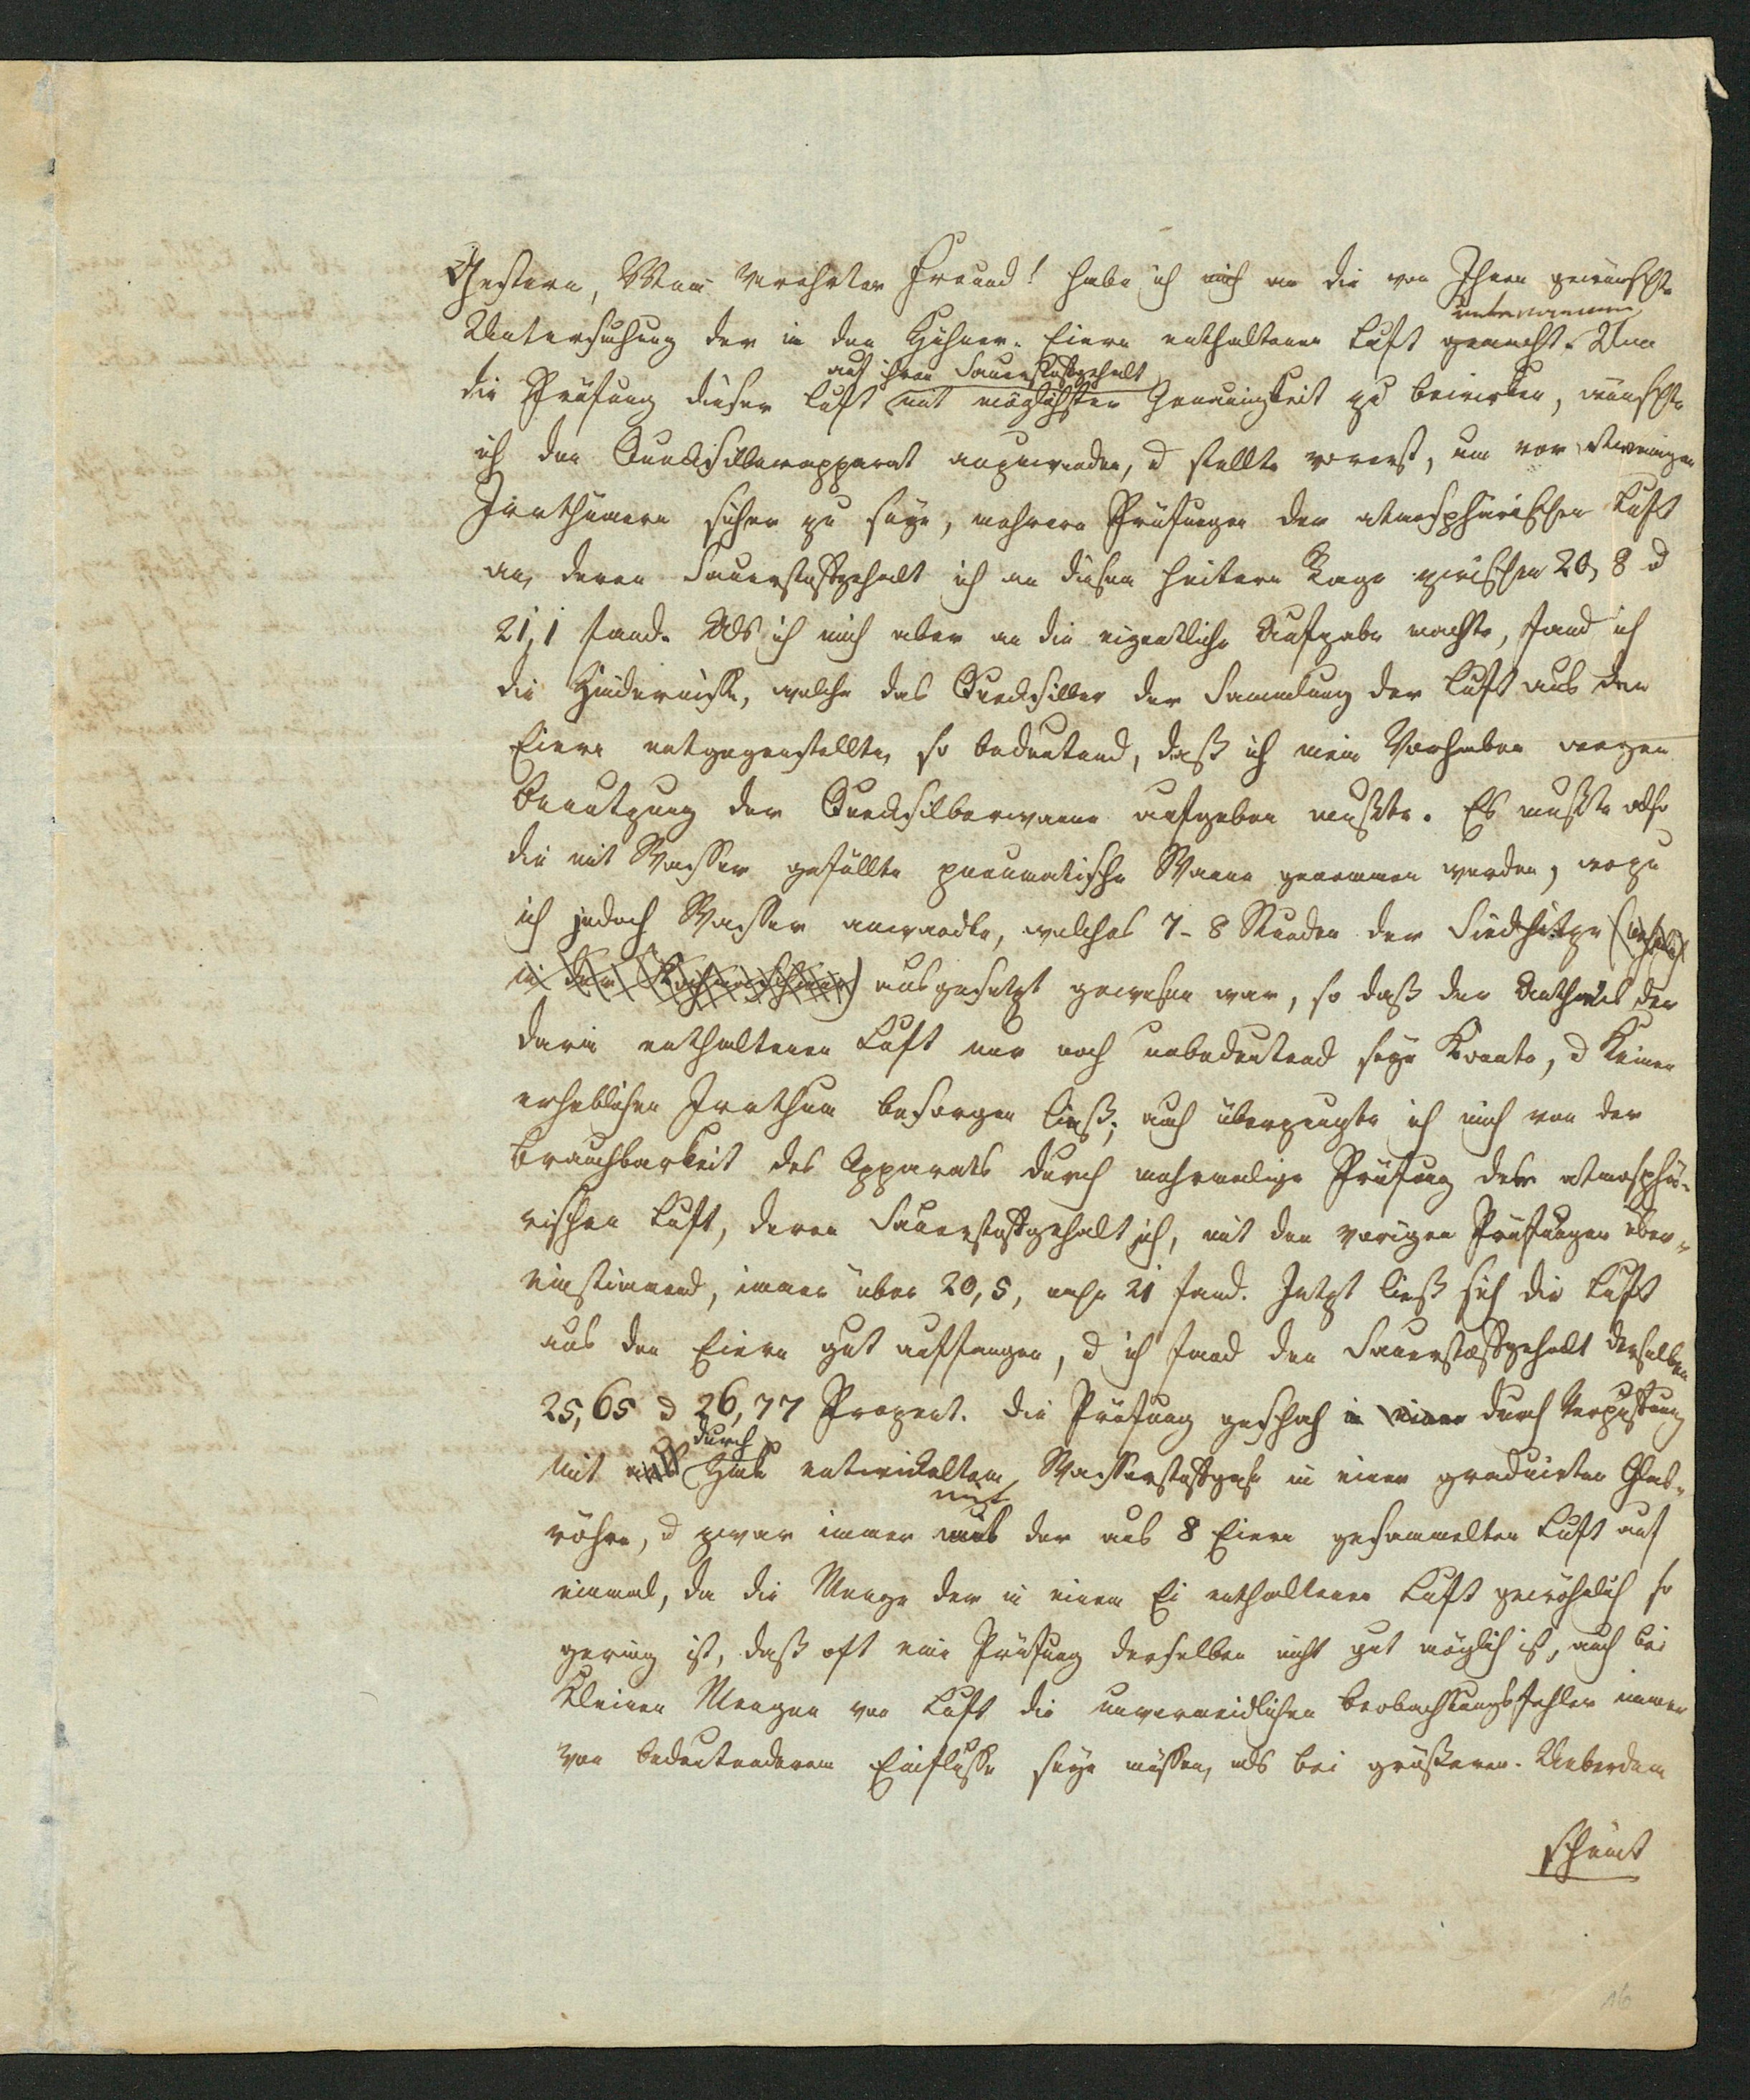 Gestern, Mein Verehrter Freund! habe ich mich an die von Ihnen gewünschte
unternommen
Untersuchung der in den Hühner-Eiern enthaltenen Luft gemacht. Um
auf ihren Sauerstoffgehalt
die Prüfung dieser Luft mit möglichster Genauigkeit zu bewirken, wünschte
ich den Quecksilberapparat anzuwenden, u stellte vorerst, um vor etwaigen
Irrthümern sicher zu seyn, mehrere Prüfungen der atmosphärischen Luft
an, deren Sauerstoffgehalt ich an diesem heitern Tage zwischen 20,8 u
21,1 fand. Als ich mich aber an die eigentliche Aufgabe machte, fand ich
die Hindernisse, welche das Quecksilber der Sammlung der Luft aus den
Eiern entgegenstellte, so bedeutend, daß ich mein Vorhaben wegen
Benutzung der Quecksilberwanne aufgeben mußte. Es mußte also
die mit Wasser gefüllte pneumatische Wanne genommen werden, wozu
ich jedoch Wasser anwandte, welches 7-8 Stunden der Siedhitze
in der Kochmaschine) ausgesetzt gewesen war, so daß der Antheil der
darin enthaltenen Luft nur noch unbedeutend seyn konnte, u keinen
erheblichen Irrthum besorgen ließ; auch überzeugte ich mich von der
Brauchbarkeit des Apparats durch mehrmalige Prüfung der atmosphä-
rischen Luft, deren Sauerstoffgehalt ich, mit den vorigen Prüfungen über-
einstimmend, immer über 20,5, nahe 21 fand. Jetzt ließ sich die Luft
aus den Eiern gut auffangen, u ich fand den Sauerstoffgehalt derselben
25,65 u 26,77 Prozent. Die Prüfung geschah in einer durch Verpuffung
durch
mit aus Zink entwickeltem Wasserstoffgase in einer graduirten Glas-
mit
röhre, u zwar immer der aus 8 Eiern gesammelten Luft auf
einmal, da die Menge der in einem Ei enthaltenen Luft gewöhnlich so
gering ist, daß oft eine Prüfung derselben nicht gut möglich ist, auch bei
kleinen Mengen von Luft die unvermeidlichen Beobachtungsfehler immer
von bedeutenderem Einflusse seyn müssen, als bei größeren. Ueberdem
scheint
16